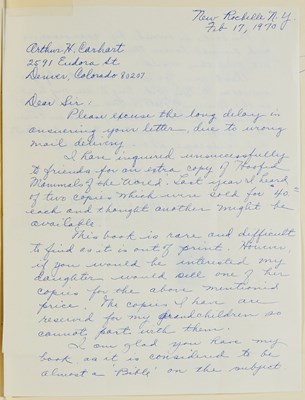 New Rochelle N.Y.
Feb 17, 1970
Arthur H. Carhart
2591 Eudora St
Denver, Colorado 80207
Dear Sir:
Please excuse the long delay in
answering your letter, due to wrong
mail delivery.
I have inquired unsuccessfully
to friends for an extra copy of Hoofed
Mammals of the World. Last year I heard
of two copies which were sold for $40
each and thought another might be
available.
This book is rare and difficult
to find as it is out of print. However,
if you would be interested my
daughter would sell one of her
copies for the above mentioned
price. The copies I have are
reserved for my grandchildren so
cannot part with them.
I am glad you have my
book, as it is considered to be
almost a "Bible" on the subject